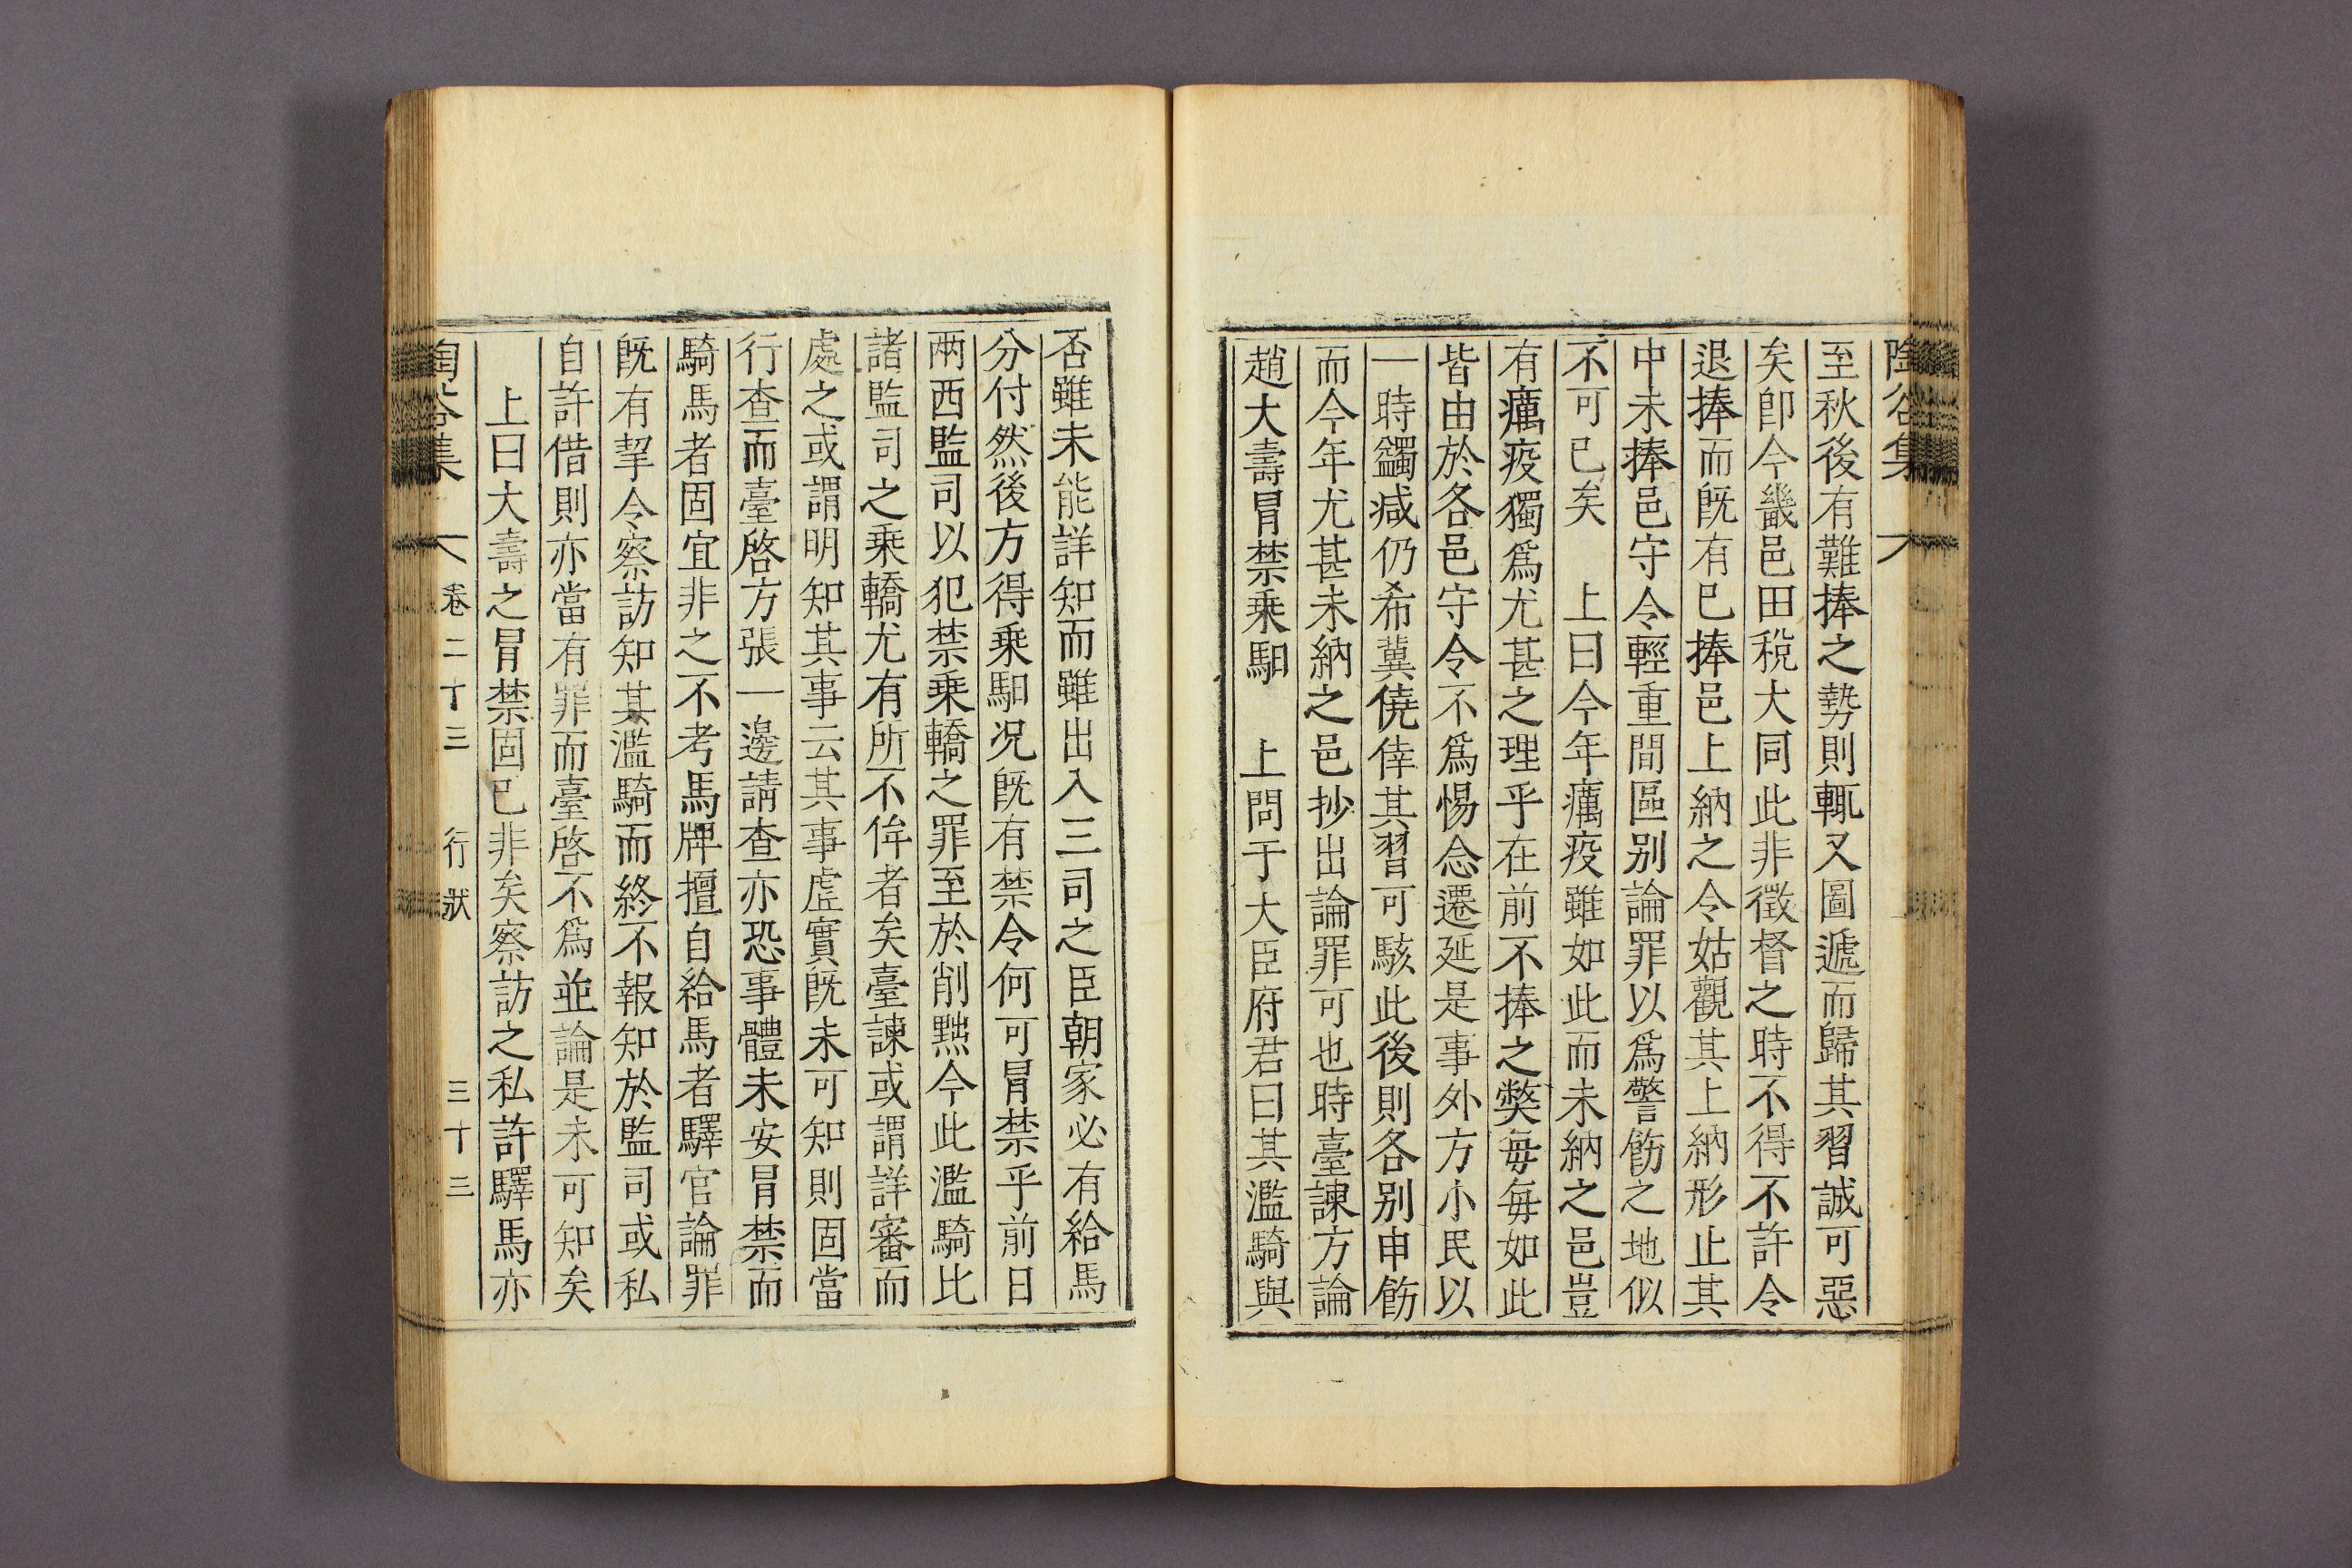 陶谷集
至秋後有難捧之勢則輒又圖遞而歸其習誠可惡
矣卽今畿邑田稅大同此非徵督之時不得不許令
退捧而旣有已捧邑上納之令姑觀其上納形止其
中未捧邑守令輕重間區別論罪以爲警飭之地似
不可已矣　上曰今年癘疫雖如此而未納之邑豈
有癘疫獨爲尤甚之理乎在前不捧之弊每每如此
皆由於各邑守令不爲惕念遷延是事外方小民以
一時蠲减仍希冀僥倖其習可駭此後則各別申飭
而今年尤甚未納之邑抄出論罪可也時臺諫方論
趙大壽冒禁乘馹　上問于大臣府君曰其濫騎與
否雖未能詳知而雖出入三司之臣朝家必有給馬
分付然後方得乘馹况旣有禁令何可冒禁乎前日
兩西監司以犯禁乘轎之罪至於削黜今此濫騎比
諸監司之乘轎尤有所不侔者矣臺諫或謂詳審而
處之或謂明知其事云其事虛實旣未可知則固當
行查而臺啓方張一邊請查亦恐事體未安冒禁而
騎馬者固宜非之不考馬牌擅自給馬者驛官論罪
旣有挈令察訪知其濫騎而終不報知於監司或私
自許借則亦當有罪而臺啓不爲並論是未可知矣
上曰大壽之冒禁固已非矣察訪之私許驛馬亦
陶谷集　卷二十三　行狀　三十三